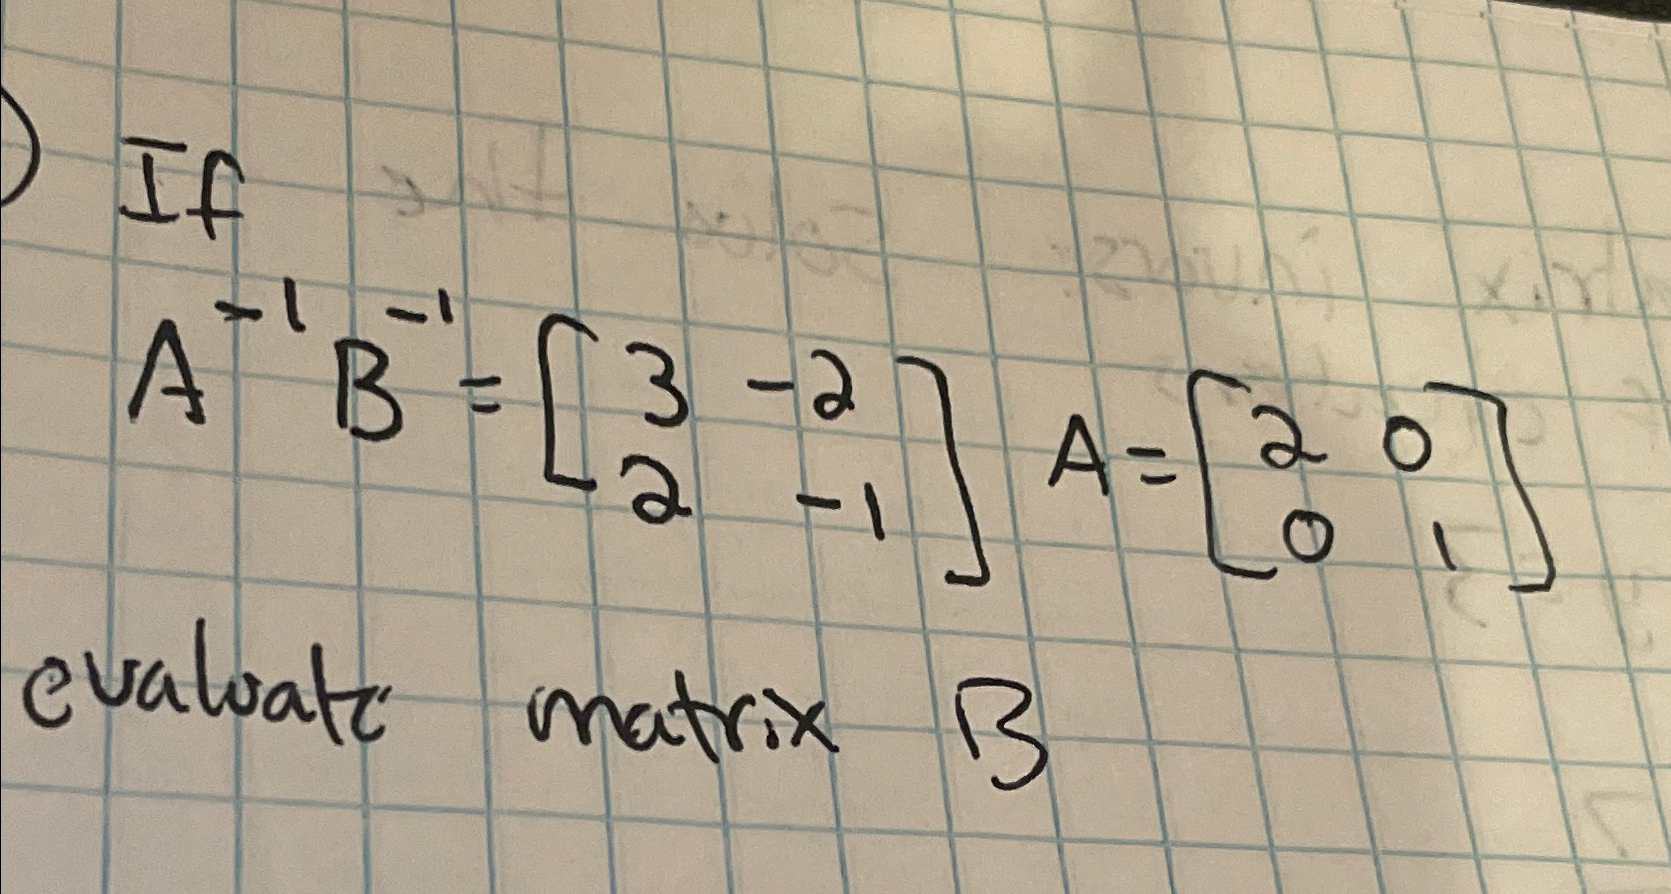 )
If
A⁻¹ B⁻¹ = [3 -2
2 -1] A = [2 0
0 1]
evaluate matrix B